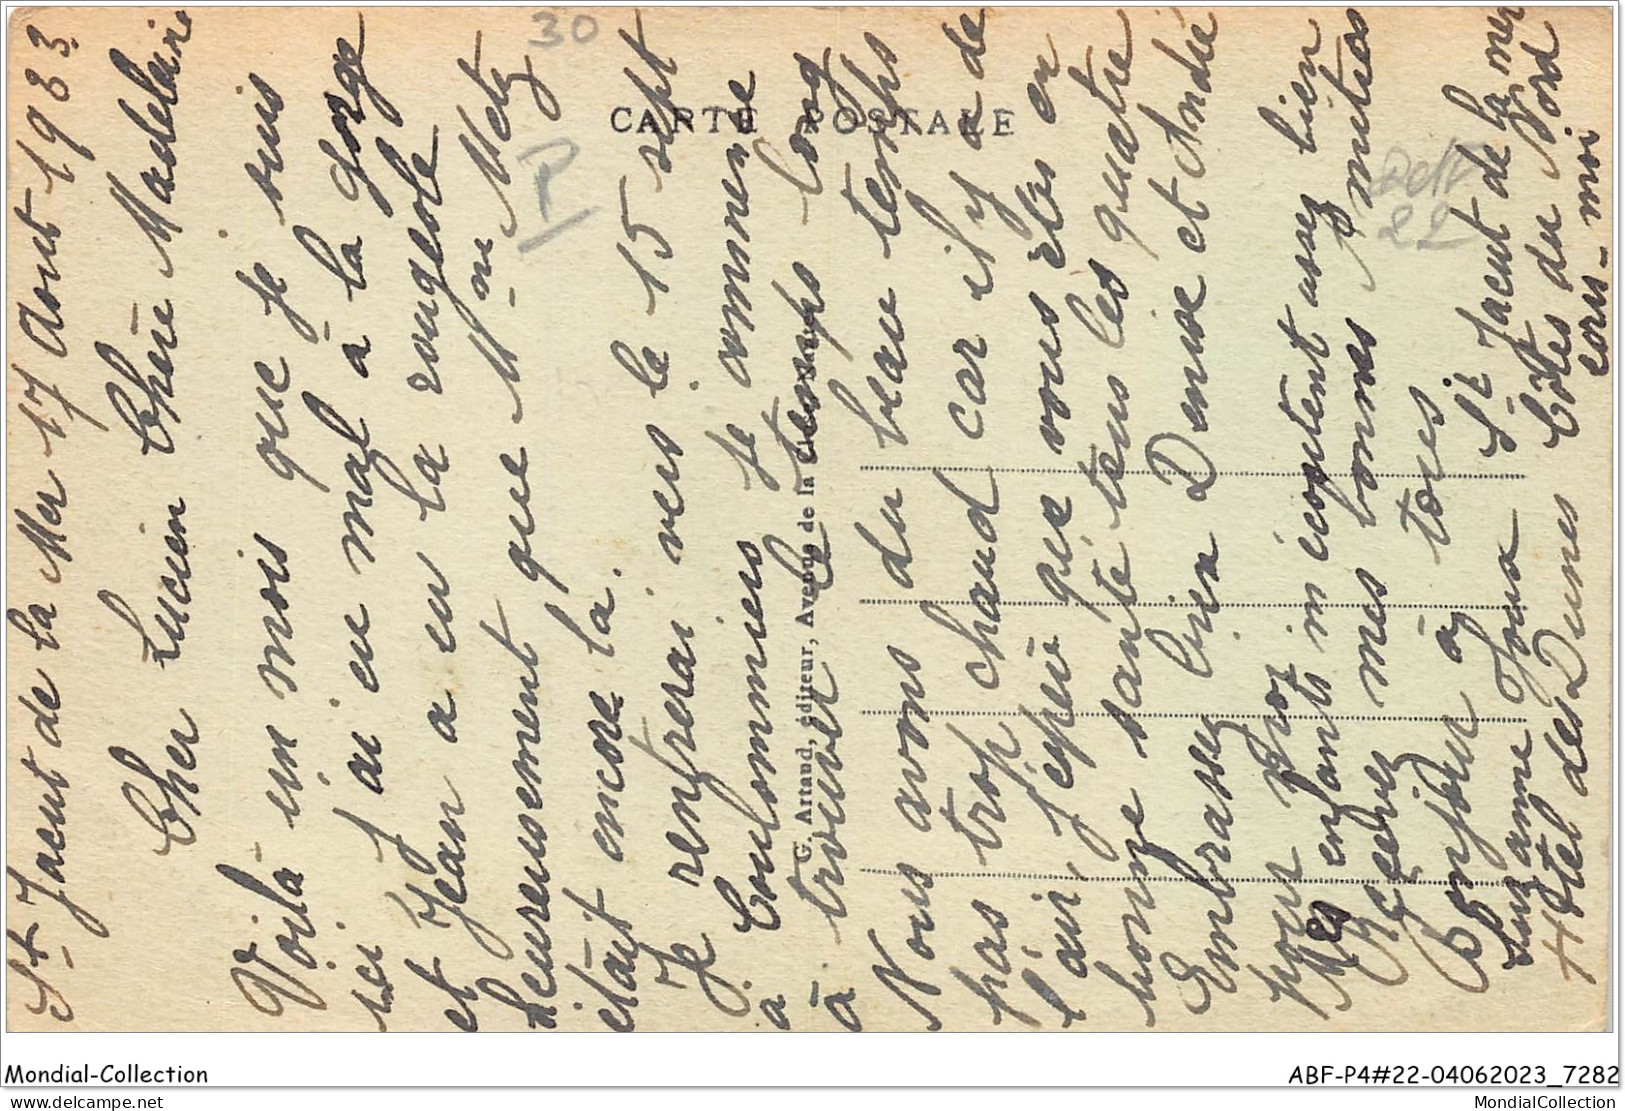 St Jacut de la Mer 17 Aout 1933
Cher Lucien Chère Madelaine
Voilà un mois que je suis
ici j'ai eu mal à la gorge
et Jean a eu la rougeole
heureusement que Mr ou Metz
était encore la.
Je rentrerai vers le 15 sept
à Coulommiers je commence
à trouver le temps long
Nous avons du beau temps
pas trop chaud car il y a de
l'air, j'espère que vous êtes en
bonne santé tous les quatre
Embrassez bien Denise et André
pour moi
Mes enfants m'écoutent assez bien
Recevez mes bonnes amitiés
Bonjour à tous
Suzanne St Jacut de la mer
Hotel des Dunes Côtes du Nord
écris-moi
CARTE POSTALE
G. Artaud, éditeur, Avenue de la
30
P
22
Mondial-Collection
ABF-P4#22-04062023_7282
delcampe.net
MondialCollection